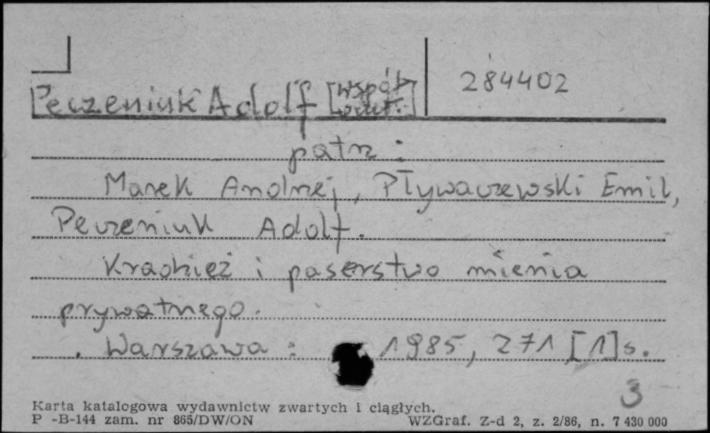 284402
Peczeniuk Adolf [współ-
aut.]
patrz:
Marek Andrzej, Pływaczewski Emil,
Peczeniuk Adolf.
Kradzież i paserstwo mienia
prywatnego.
. Warszawa : 1985, 271 [1] s.
3
Karta katalogowa wydawnictw zwartych i ciągłych.
P -B-144 zam. nr 865/DW/ON WZGraf. Z-d 2, z. 2/86, n. 7 430 000